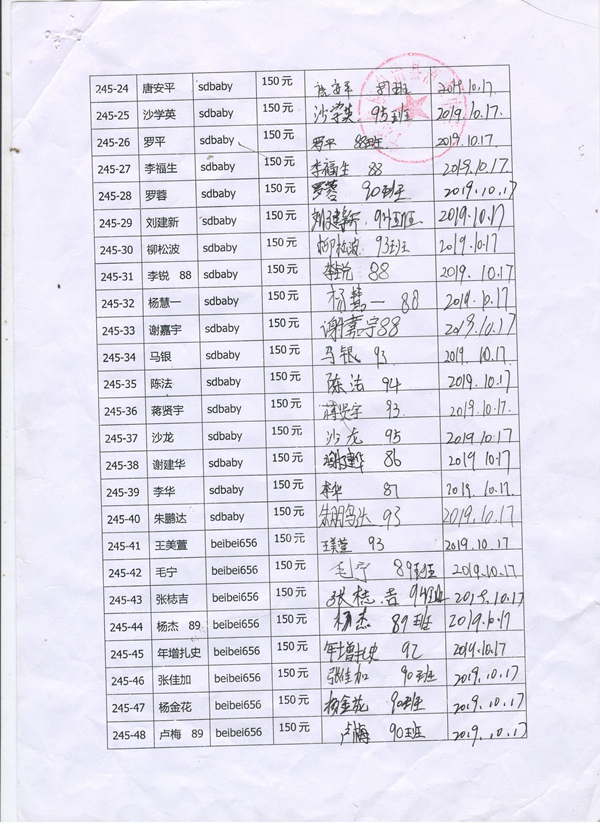 245-24 唐安平 sdbaby 150元 唐安平 班 2019.10.17
245-25 沙学英 sdbaby 150元 沙学英 95班 2019.10.17.
245-26 罗平 sdbaby 150元 罗平 88班 2019.10.17.
245-27 李福生 sdbaby 150元 李福生 88 2019.10.17
245-28 罗蓉 sdbaby 150元 罗蓉 90班 2019.10.17
245-29 刘建新 sdbaby 150元 刘建新 94班 2019.10.17
245-30 柳松波 sdbaby 150元 柳松波 93班 2019.10.17
245-31 李锐 88 sdbaby 150元 李锐 88 2019.10.17
245-32 杨慧一 sdbaby 150元 杨慧一 88 2019.10.17
245-33 谢嘉宇 sdbaby 150元 谢嘉宇 88 2019.10.17
245-34 马银 sdbaby 150元 马银 93 2019.10.17
245-35 陈法 sdbaby 150元 陈法 94 2019.10.17
245-36 蒋贤宇 sdbaby 150元 蒋贤宇 93 2019.10.17.
245-37 沙龙 sdbaby 150元 沙龙 95 2019.10.17
245-38 谢建华 sdbaby 150元 谢建华 86 2019 10.17
245-39 李华 sdbaby 150元 李华 87 2019.10.17
245-40 朱鹏达 sdbaby 150元 朱鹏达 93 2019.10.17
245-41 王美萱 beibei656 150元 王美萱 93 2019.10.17
245-42 毛宁 beibei656 150元 毛宁 89班 2019.10.17
245-43 张梽吉 beibei656 150元 张梽吉 94班 2019.10.17
245-44 杨杰 89 beibei656 150元 杨杰 89班 2019.10.17
245-45 年增扎史 beibei656 150元 年增扎史 92 2019.10.17
245-46 张佳加 beibei656 150元 张佳加 90班 2019.10.17
245-47 杨金花 beibei656 150元 杨金花 90班 2019.10.17
245-48 卢梅 89 beibei656 150元 卢梅 90班 2019.10.17